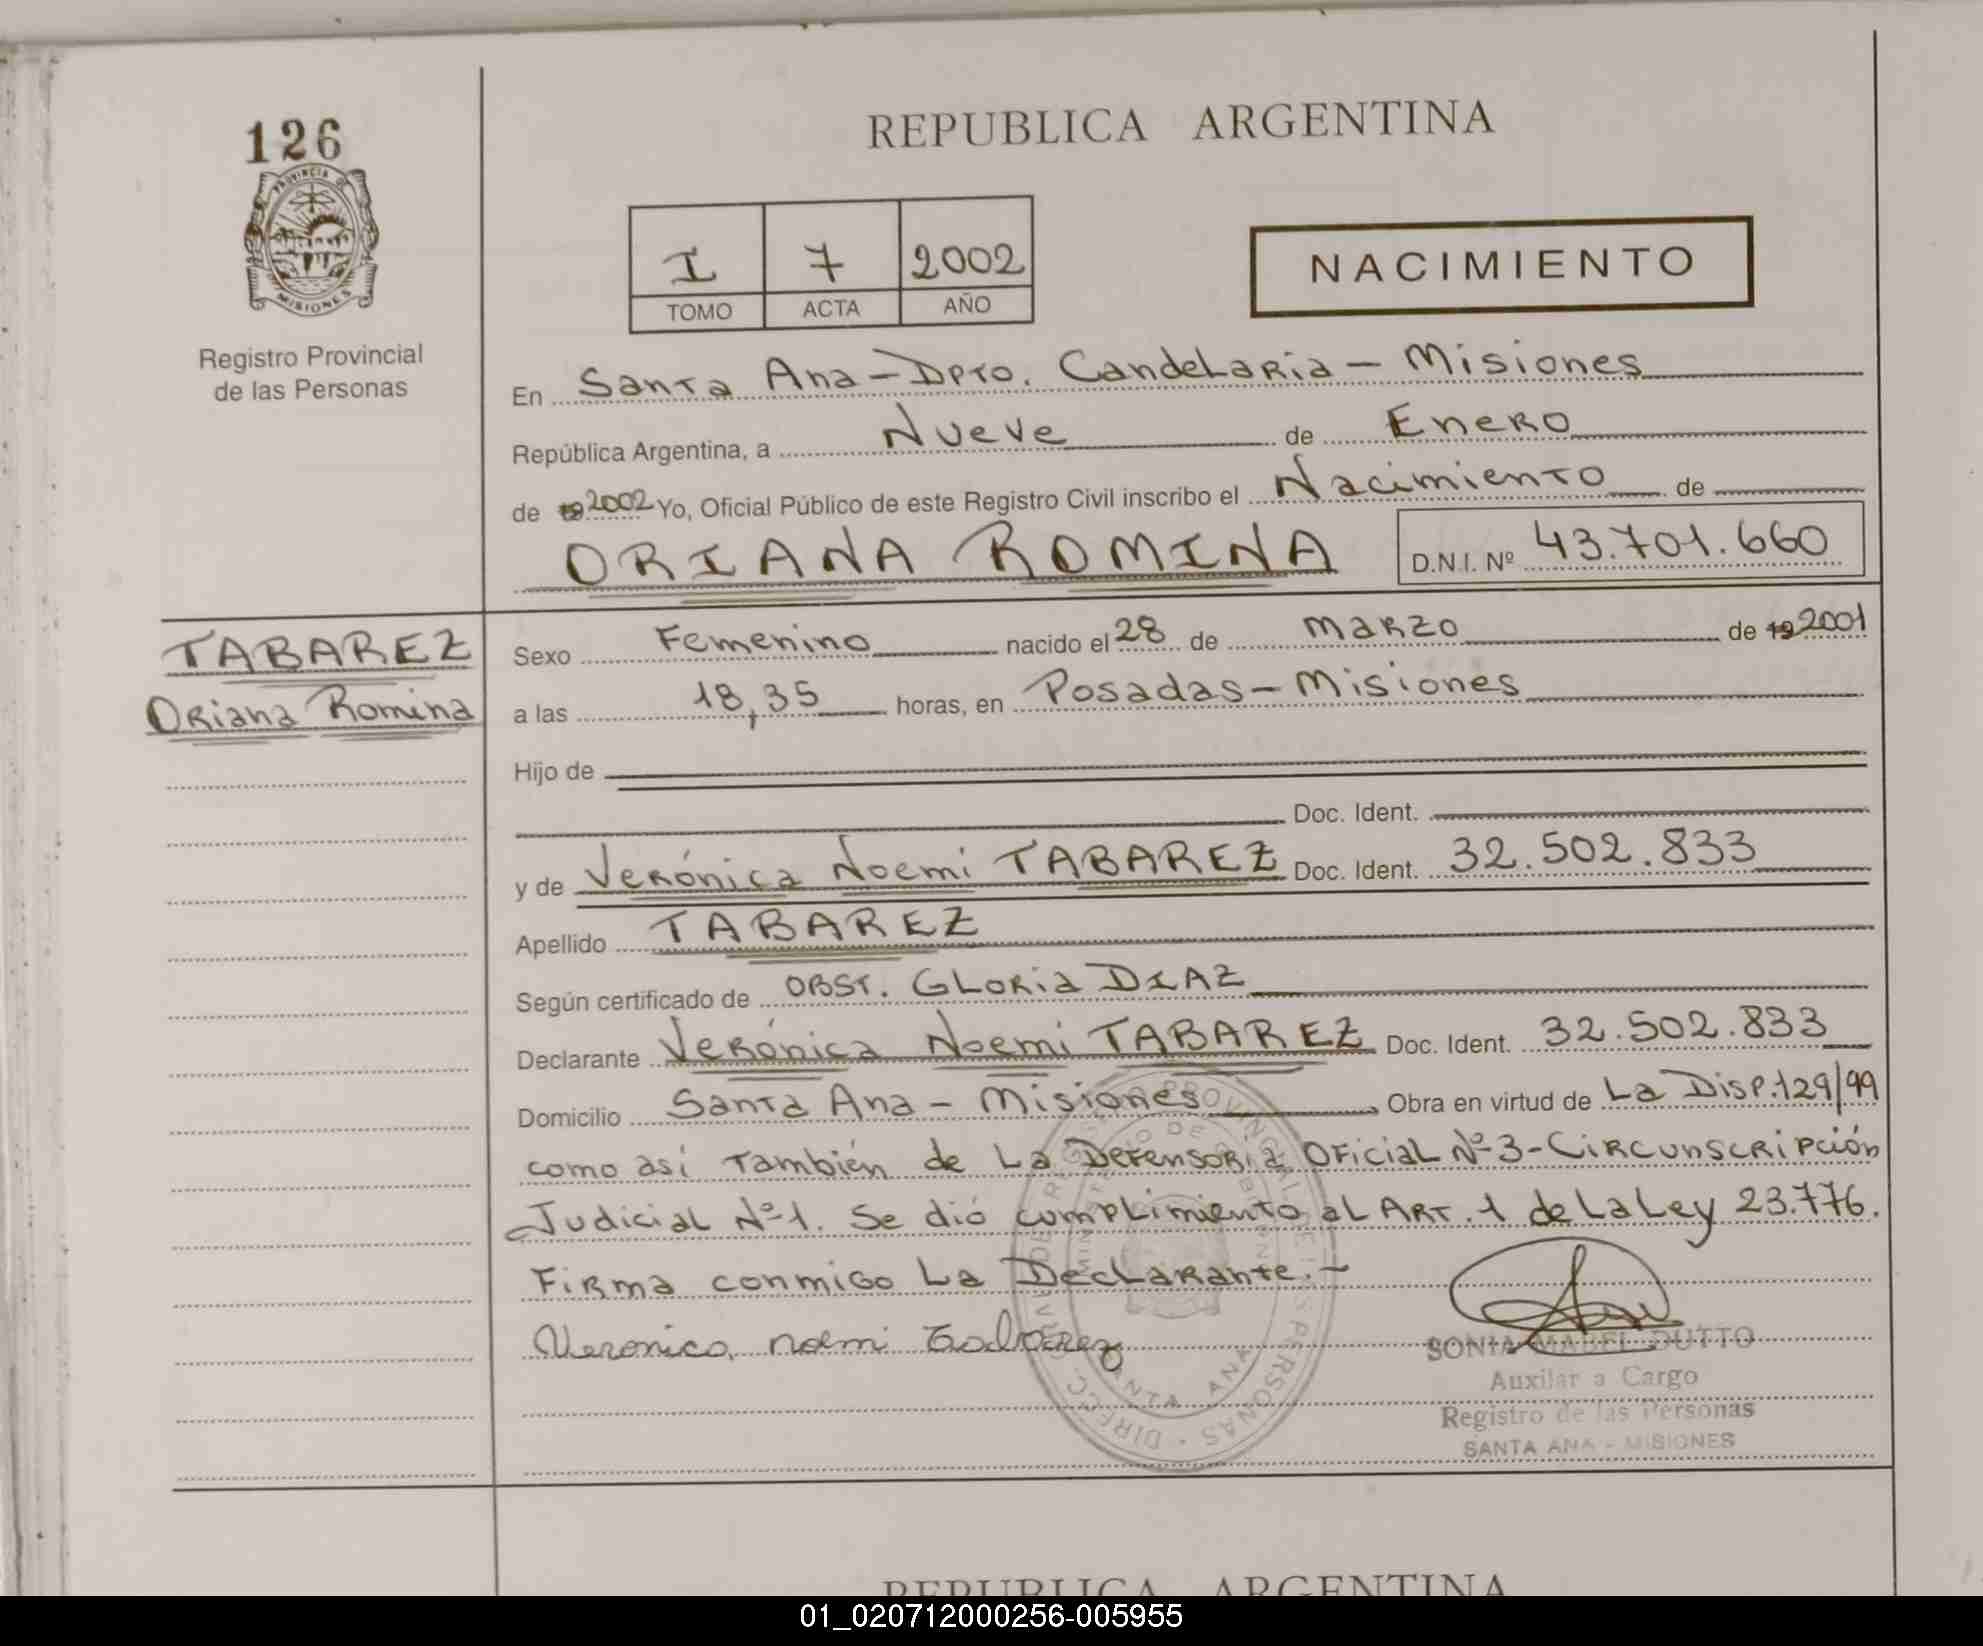 126
PROVINCIA DE
MISIONES
Registro Provincial
de las Personas
REPUBLICA ARGENTINA
I 7 2002
TOMO ACTA AÑO
NACIMIENTO
En Santa Ana - Dpto. Candelaria - Misiones
República Argentina, a Nueve de Enero
de 19 2002 Yo, Oficial Público de este Registro Civil inscribo el Nacimiento de
ORIANA ROMINA D.N.I. Nº 43.701.660
TABAREZ
Oriana Romina
Sexo Femenino nacido el 28 de marzo de 19 2001
a las 18,35 horas, en Posadas - Misiones
Hijo de
Doc. Ident.
y de Verónica Noemi TABAREZ Doc. Ident. 32.502.833
Apellido TABAREZ
Según certificado de OBST. GLORIA DIAZ
Declarante Verónica Noemi TABAREZ Doc. Ident. 32.502.833
Domicilio Santa Ana - Misiones, Obra en virtud de La Disp. 129/99
como asi también de La Defensoría Oficial Nº 3 - Circunscripción
Judicial Nº 1. Se dió cumplimiento al Art. 1 de La Ley 23.776.
Firma conmigo La Declarante. -
Veronica noemi Tabarez
SONIA MABEL DUTTO
Auxilar a Cargo
Registro de las Personas
SANTA ANA - MISIONES
REPUBLICA ARGENTINA
01_020712000256-005955